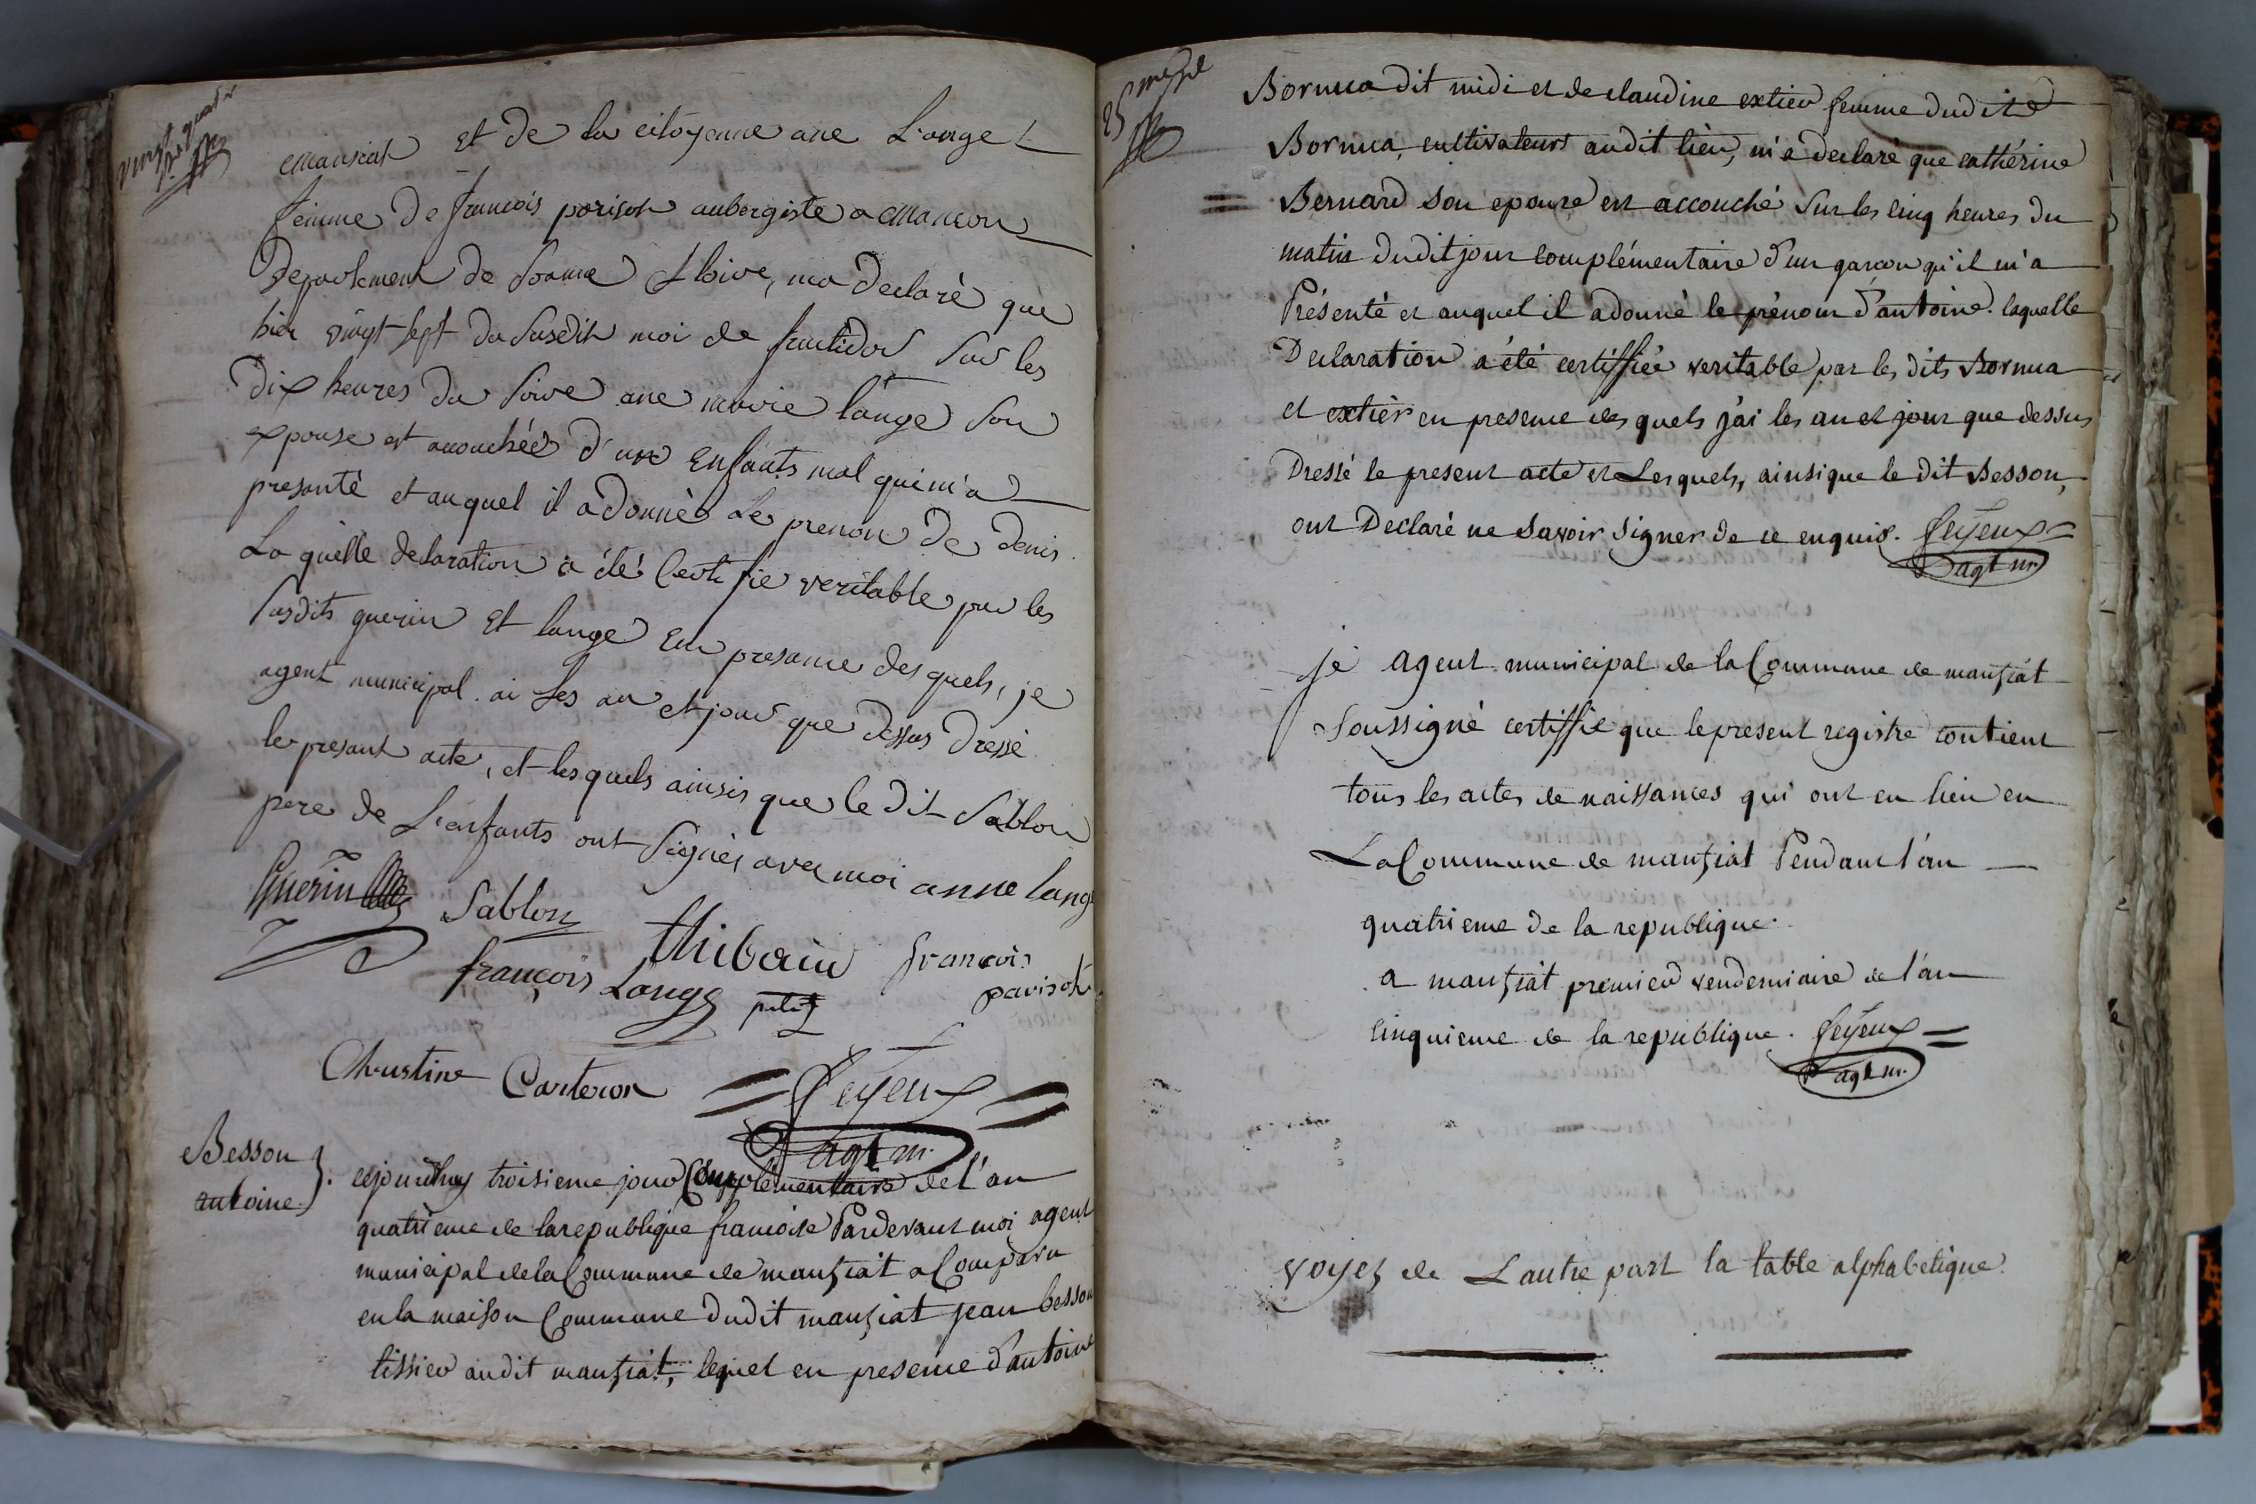 vingt
quatre
Mansiat et de la citoyenne ane Lange
femme de françois parisot aubergiste a Macon
Departement de Soanne & Loire, ma declaré que
hier vingt sept du susdit moi de fructidor sur les
dix heures du soire ane marie lange son
epouse est acouchée d'un enfants mal qui m'a
presanté et auquel il a donné le prenon de denis.
La quelle delaration a été Certifie veritable par les
susdits guerin et lange en presance des quels, je
agent municipal ai les an et jour que dessus dressé
le presant acte, et lesquels ainsis que le dit Sablon
pere de L'enfants ont signés avec moi anne lange
Guerin Sablon thibaud françois
parisot
françois Lange
Christine Carteron feyeux
agt m.
Besson
antoine
cejourdhuy troisieme jour Complémentaire de l'an
quatrieme de la republique francoise Pardevant moi agent
municipal de la Commune de manziat a Comparu
en la maison Commune dudit manziat jean besson
tissier audit manziat, lequel en presence d'antoine
25 me
Bornua dit midi et de claudine extier femme dudit
Bornua, cultivateurs audit lieu, m'a declaré que cathérine
Bernard son epouse est accouché sur les cinq heures du
matin dudit jour complémentaire d'un garcon qu'il m'a
Présenté et auquel il a donné le prénom d'antoine. laquelle
Declaration a été certiffiée veritable par les dits Bornua
et extier en presence des quels j'ai les an et jour que dessus
Dressé le present acte et Lesquels, ainsi que le dit Besson,
ont Declaré ne savoir signer de ce enquis. feyeux
agt m.
je agent municipal de la Commune de manziat
soussigné certiffie que le present registre contient
tous les actes de naissances qui ont eu lieu en
La Commune de manziat Pendant l'an
quatrieme de la republique.
a manziat premier vendemiaire de l'an
cinquieme de la republique. feyeux
agt m.
voyez de Lautre part la table alphabetique.